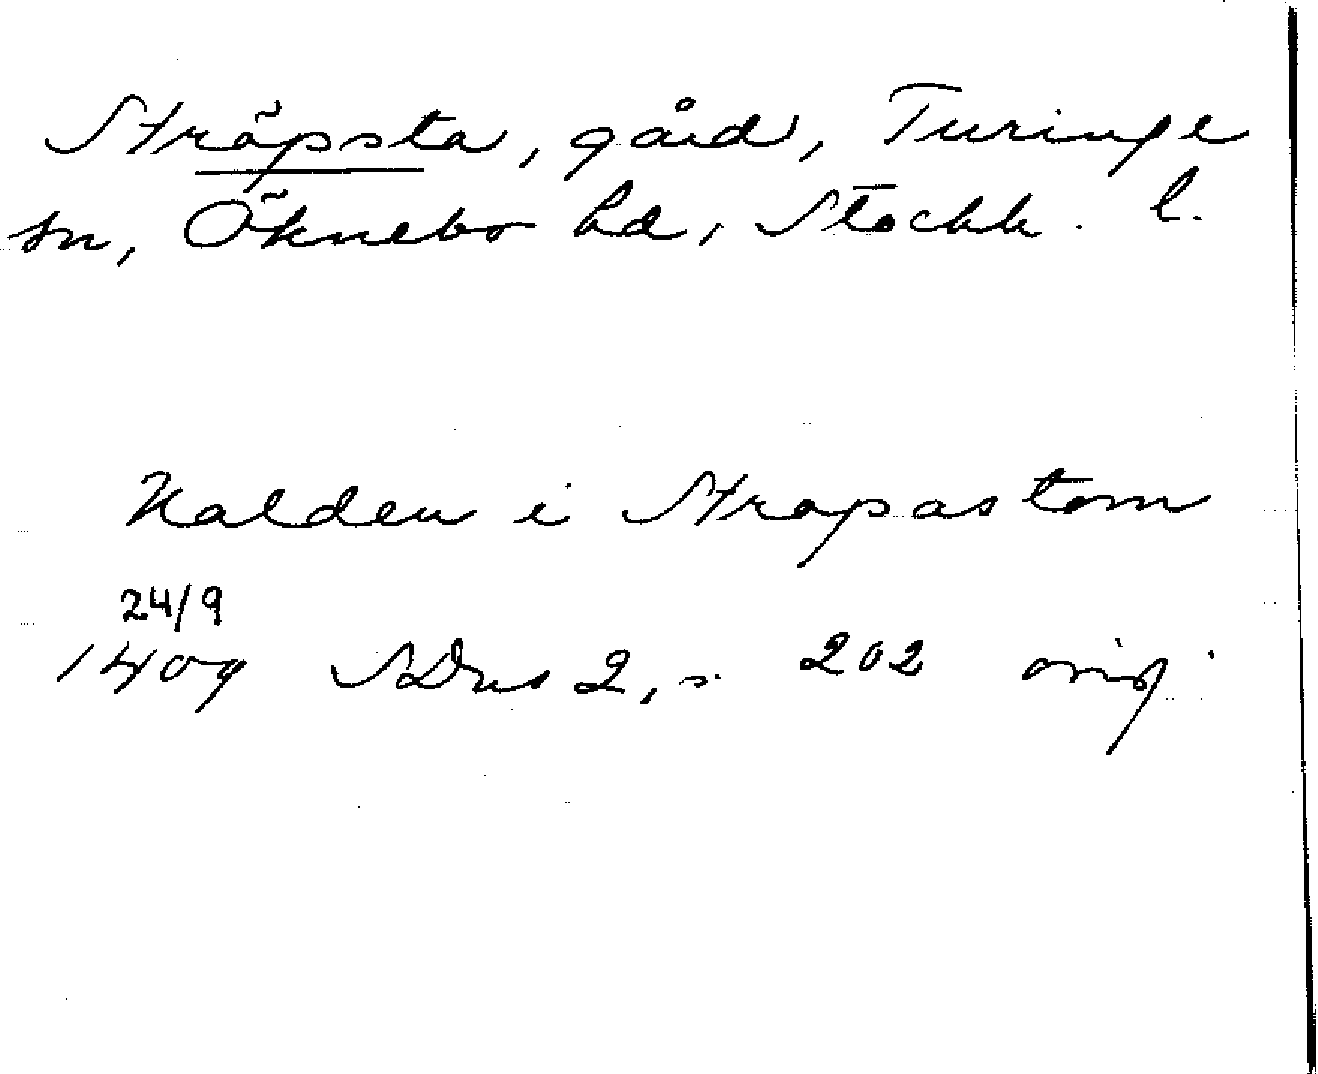 Sträpsta, gård, Turinge
sn, Öknebo hd, Stockh. l.
Halden i Strapastom
24/9
1409 SDns 2, s. 202 orig.